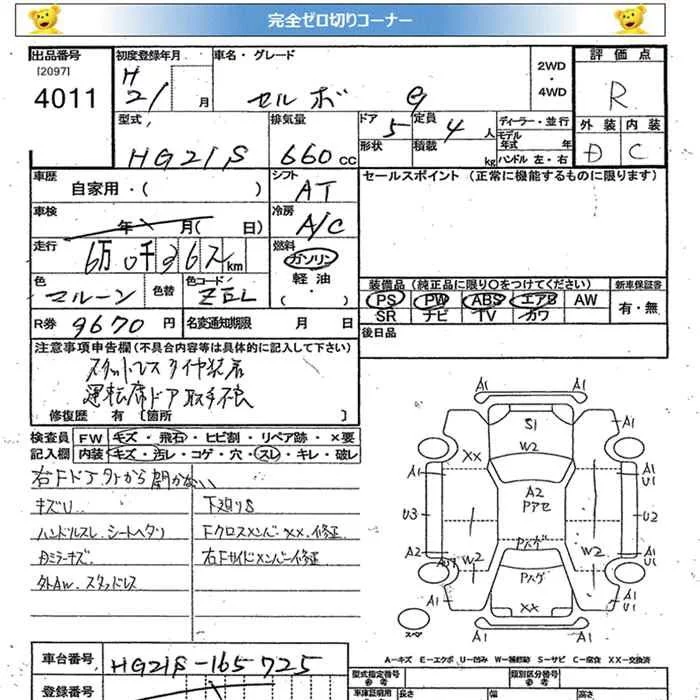 完全ゼロ切りコーナー
出品番号 初度登録年月 車名・グレード 2WD・4WD 評価点
[2097]
4011 H21 月 セルボ G R
型式 排気量 ドア 定員 ディーラー・並行 外装 内装
HG21S 660cc 5 4人 モデル年式 年 D C
形状 積載 kg ハンドル 左・右
車歴 シフト セールスポイント (正常に機能するものに限ります)
自家用・( ) AT
車検 冷房
年 月( 日) A/C
走行 燃料
6万0千 km ガソリン
軽油・( )
色 色替 色コード 装備品 (純正品に限り○をつけてください) 新車保証書
マルーン ZEL PS PW ABS エアB AW 有・無
SR ナビ TV カワ
R券 9670円 名変通知期限 月 日 後日品
注意事項申告欄 (不具合内容等は具体的に記入して下さい)
スタットレスタイヤ装着
運転席ドア取手不良
修復歴 有 [箇所 ]
検査員 FW キズ・飛石・ヒビ割・リペア跡・×要
記入欄 内装 キズ・汚レ・コゲ・穴・スレ・キレ・破レ
右Fドア外から開かない
キズU 下廻りS
ハンドルスレ、シートヘタリ FクロスメンバーXX、修正
内ミラーキズ 右Fサイドメンバー修正
外AW、スタッドレス
A1
A1 S1 A1
XX W2
A1 A2 A1
U1
U3 Pアセ U2
A2 Pハゲ A1
W2 W2 U1
Pハゲ
A1 XX A1
U1
スペア A1
A-キズ E-エクボ U-凹み W-補修跡 S-サビ C-腐食 XX-交換済
車台番号 HG21S-165725
型式指定番号 参考 類別区分番号 参考
登録番号 車庫証明用 長さ 幅 高さ